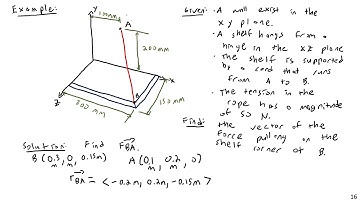 Example:
Given:
A wall exist in the
xy plane.
A shelf hangs from a
hinge in the xz plane
The shelf is supported
by a cord that runs
from A to B.
The tension in the
rope has a magnitude
of 50 N.
Find:
the vector of the
force pulling on the
shelf corner at B.
y
100mm
A
200mm
x
B
z
300 mm
150 mm
Solution: Find F_BA.
B (0.3, 0, 0.15m) A (0.1, 0.2, 0)
m m m m
r_BA = < -0.2m, 0.2m, -0.15m >
16